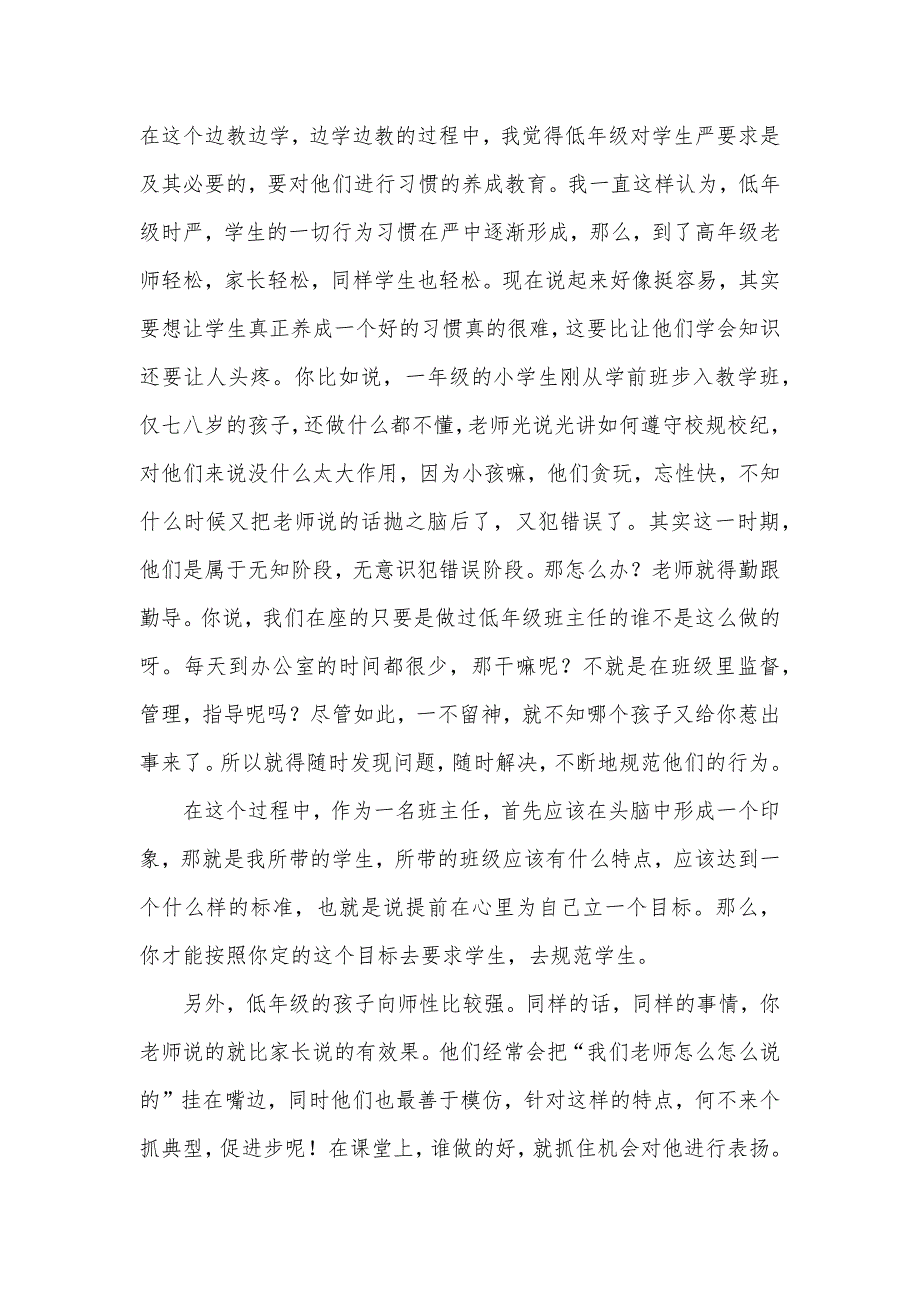 在这个边教边学，边学边教的过程中，我觉得低年级对学生严要求是
及其必要的，要对他们进行习惯的养成教育。我一直这样认为，低年
级时严，学生的一切行为习惯在严中逐渐形成，那么，到了高年级老
师轻松，家长轻松，同样学生也轻松。现在说起来好像挺容易，其实
要想让学生真正养成一个好的习惯真的很难，这要比让他们学会知识
还要让人头疼。你比如说，一年级的小学生刚从学前班步入教学班，
仅七八岁的孩子，还做什么都不懂，老师光说光讲如何遵守校规校纪，
对他们来说没什么太大作用，因为小孩嘛，他们贪玩，忘性快，不知
什么时候又把老师说的话抛之脑后了，又犯错误了。其实这一时期，
他们是属于无知阶段，无意识犯错误阶段。那怎么办？老师就得勤跟
勤导。你说，我们在座的只要是做过低年级班主任的谁不是这么做的
呀。每天到办公室的时间都很少，那干嘛呢？不就是在班级里监督，
管理，指导呢吗？尽管如此，一不留神，就不知哪个孩子又给你惹出
事来了。所以就得随时发现问题，随时解决，不断地规范他们的行为。
在这个过程中，作为一名班主任，首先应该在头脑中形成一个印
象，那就是我所带的学生，所带的班级应该有什么特点，应该达到一
个什么样的标准，也就是说提前在心里为自己立一个目标。那么，
你才能按照你定的这个目标去要求学生，去规范学生。
另外，低年级的孩子向师性比较强。同样的话，同样的事情，你
老师说的就比家长说的有效果。他们经常会把“我们老师怎么怎么说
的”挂在嘴边，同时他们也最善于模仿，针对这样的特点，何不来个
抓典型，促进步呢！在课堂上，谁做的好，就抓住机会对他进行表扬。